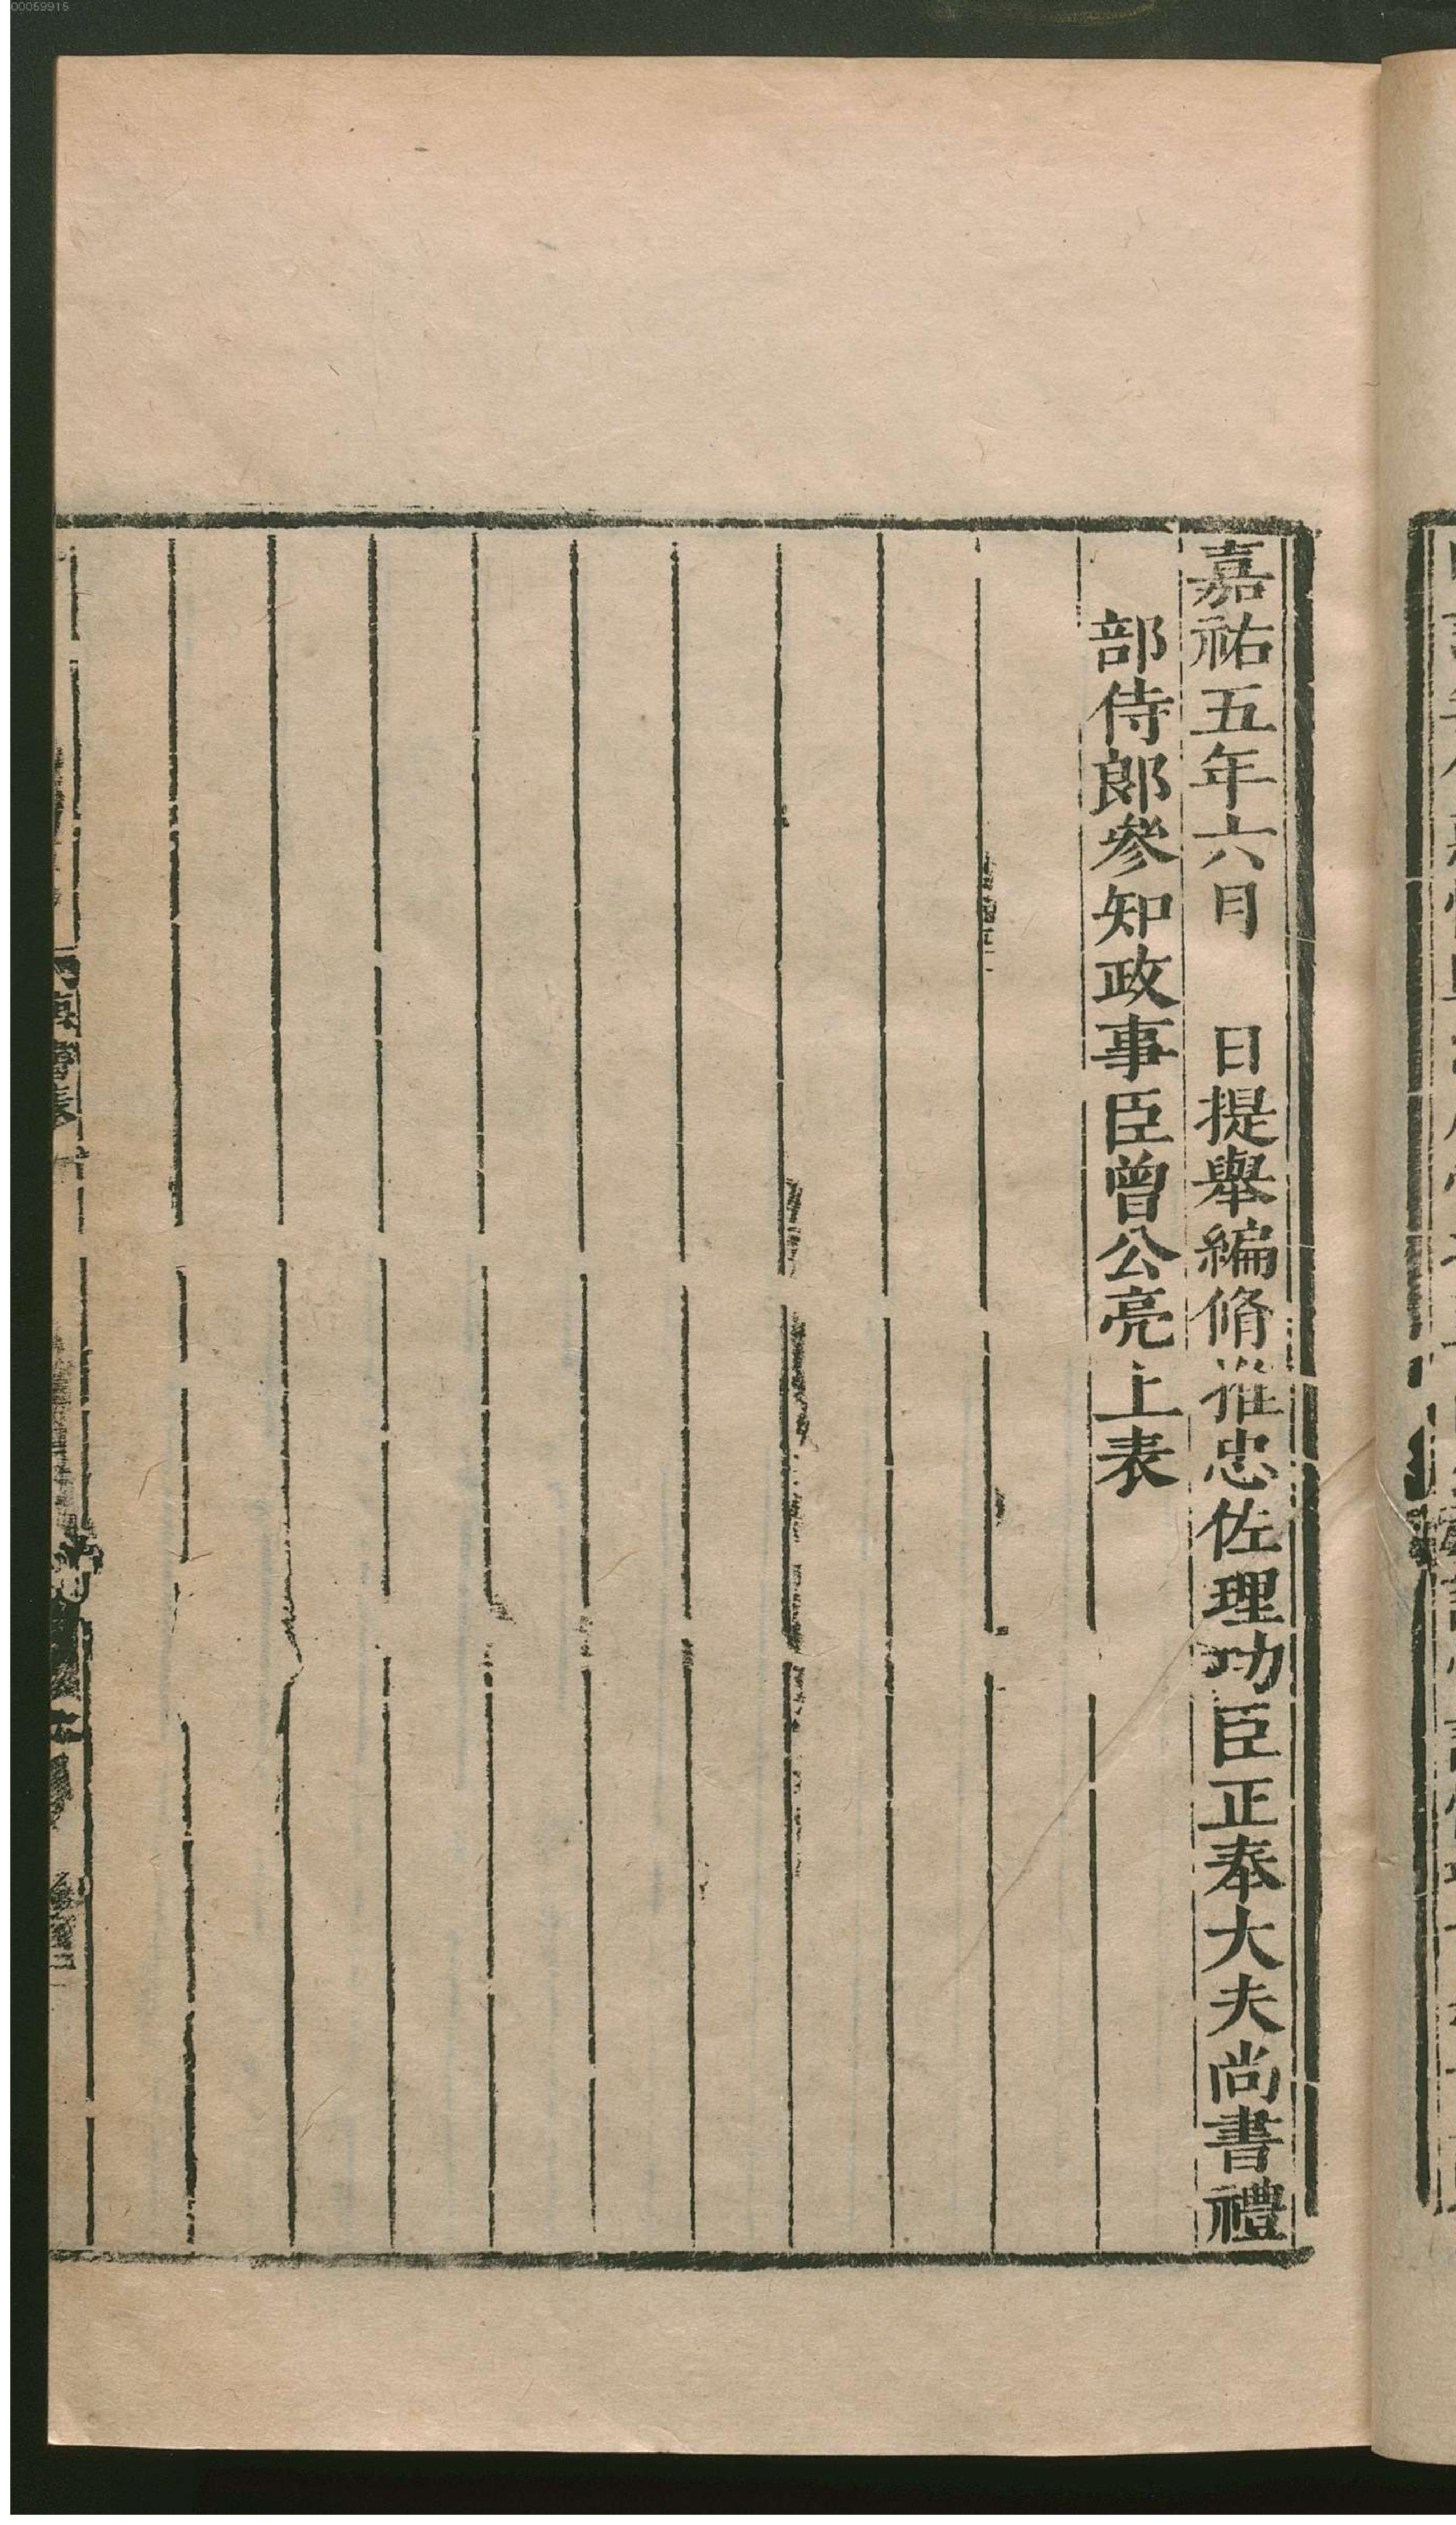 嘉祐五年六月　日提舉編脩推忠佐理功臣正奉大夫尚書禮
部侍郎參知政事臣曾公亮上表
00059915